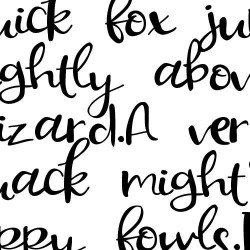 uick fox ju
ghtly abov
izard.A ver
uack might
ppy fowls